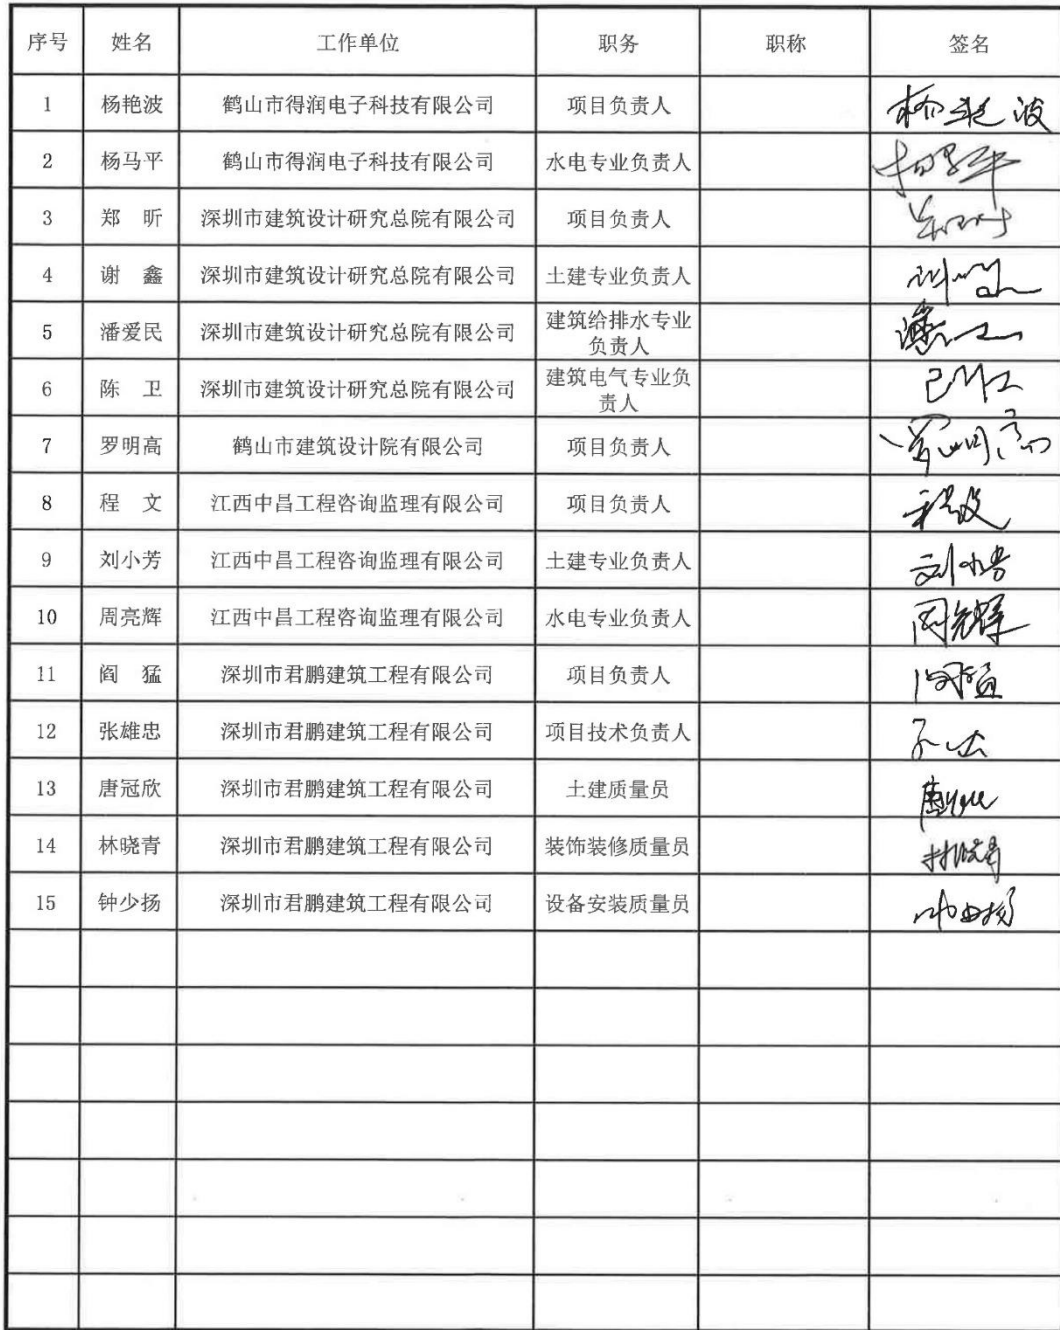 序号 姓名 工作单位 职务 职称 签名
1 杨艳波 鹤山市得润电子科技有限公司 项目负责人 杨艳波
2 杨马平 鹤山市得润电子科技有限公司 水电专业负责人
3 郑 昕 深圳市建筑设计研究总院有限公司 项目负责人
4 谢 鑫 深圳市建筑设计研究总院有限公司 土建专业负责人
5 潘爱民 深圳市建筑设计研究总院有限公司 建筑给排水专业
负责人
6 陈 卫 深圳市建筑设计研究总院有限公司 建筑电气专业负
责人
7 罗明高 鹤山市建筑设计院有限公司 项目负责人 罗明高
8 程 文 江西中昌工程咨询监理有限公司 项目负责人 程文
9 刘小芳 江西中昌工程咨询监理有限公司 土建专业负责人 刘小芳
10 周亮辉 江西中昌工程咨询监理有限公司 水电专业负责人 周亮辉
11 阎 猛 深圳市君鹏建筑工程有限公司 项目负责人
12 张雄忠 深圳市君鹏建筑工程有限公司 项目技术负责人
13 唐冠欣 深圳市君鹏建筑工程有限公司 土建质量员
14 林晓青 深圳市君鹏建筑工程有限公司 装饰装修质量员 林晓青
15 钟少扬 深圳市君鹏建筑工程有限公司 设备安装质量员